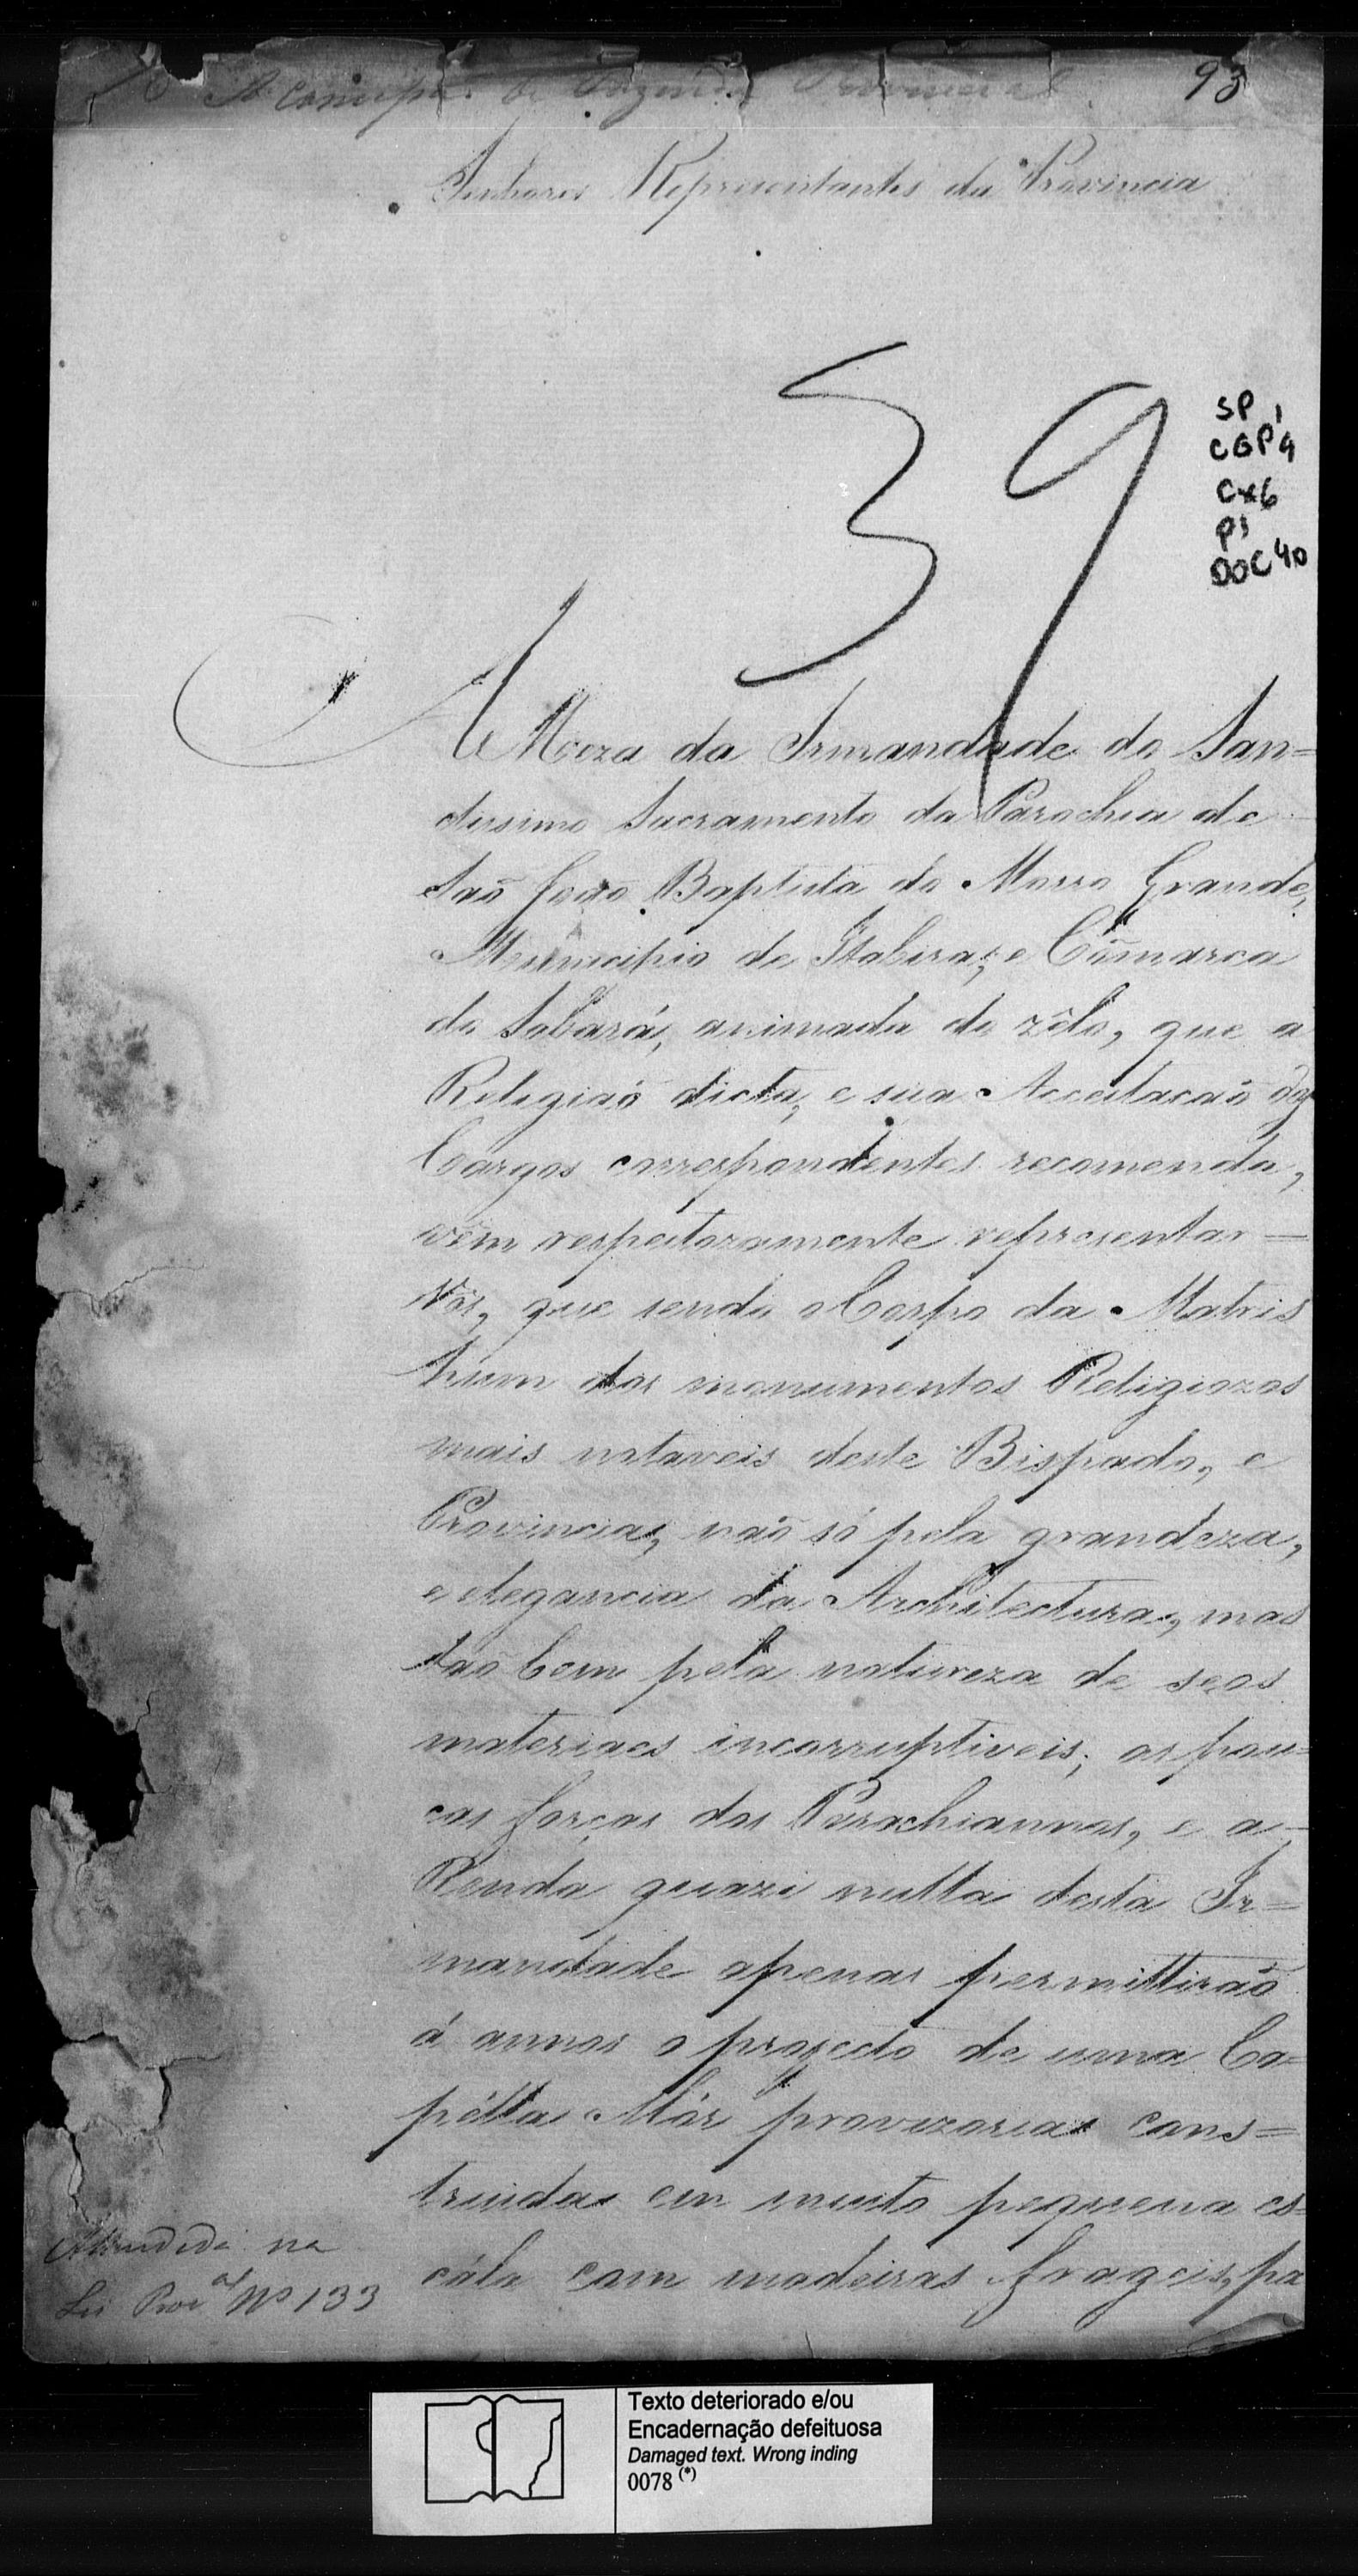 A Comissão de Fazenda Provincial
93
Senhores Representantes da Provincia
39
SP 1
CGP 4
Cx 6
P1
DOC 40
A Meza da Irmandade do San=
ctissimo Sacramento da Parochia de
Saõ Joaõ Baptista do Morro Grande,
Municipio de Itabira, e Cõmarca
do Sabará, animada do zêlo, que a
Religiaõ dicta, e sua Acceitacaõ dos
Cargos correspondentes recomenda,
vem respeitozamente representar=
Vos, que sendo o Corpo da Matris
hum dos monumentos Religiozos
mais notaveis deste Bispado, e
Provincia, naõ só pela grandeza,
e elegancia da Architectura, mas
taõ bem pela natureza de seos
materiaes incorruptiveis; as pou=
cas forças dos Parochiannos, e a
Renda quazi nulla desta Ir=
mandade apenas permittiraõ
á annos o projecto de uma Ca=
pélla Mór provizoria cons=
truida em muito pequena es=
cála com madeiras frageis, pa
Attendida na
Lei Prov.al Nº 133
Texto deteriorado e/ou
Encadernação defeituosa
Damaged text. Wrong inding
0078 (*)